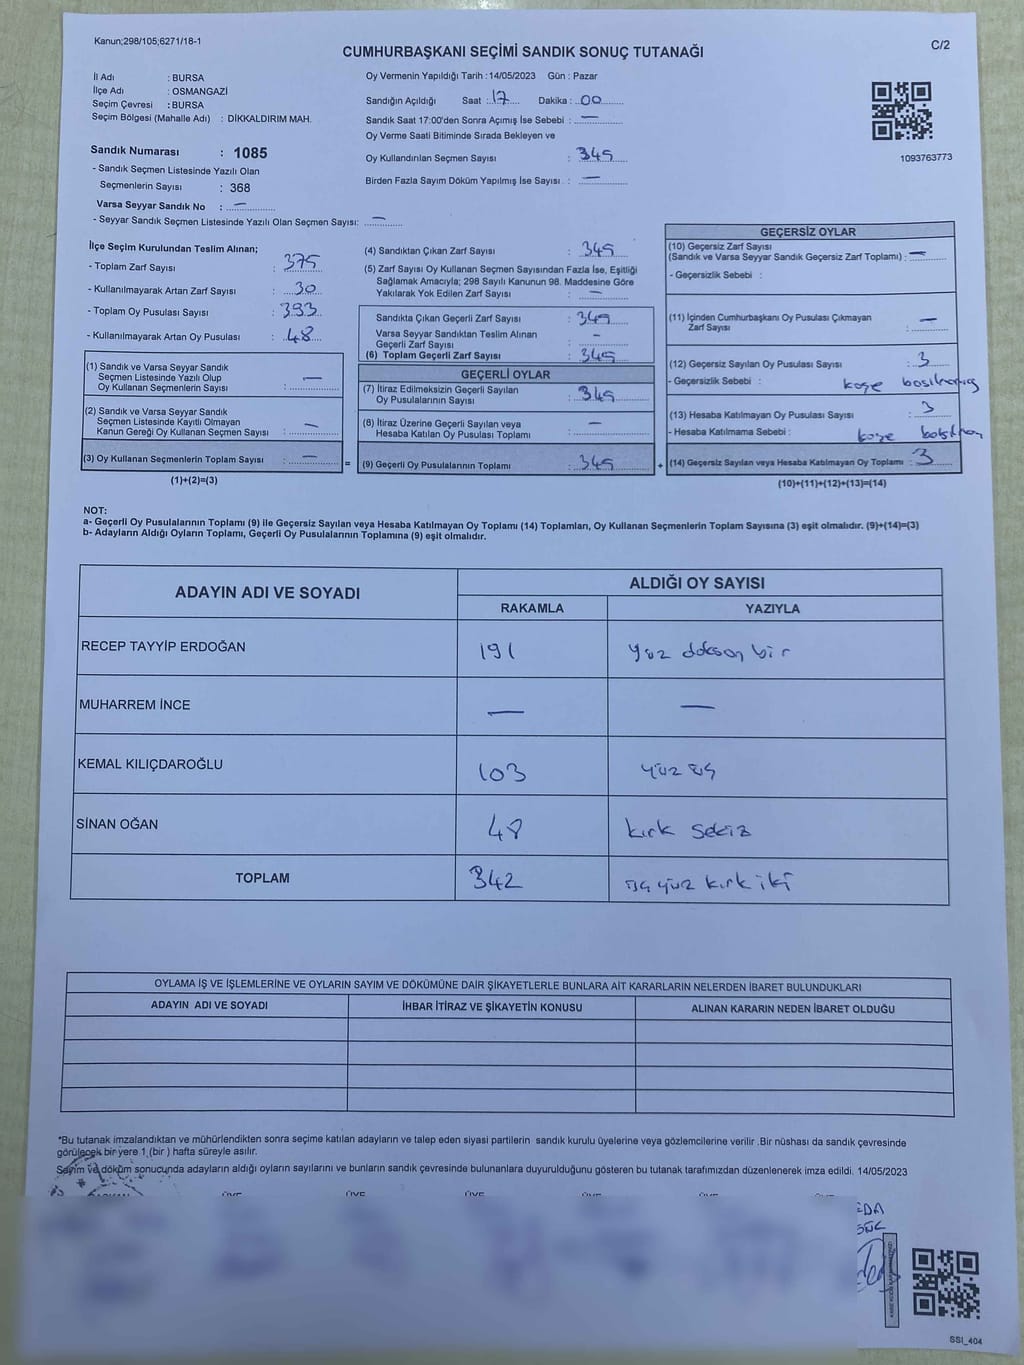 Kanun;298/105;6271/18-1
C/2
CUMHURBAŞKANI SEÇİMİ SANDIK SONUÇ TUTANAĞI
İl Adı : BURSA
İlçe Adı : OSMANGAZİ
Seçim Çevresi : BURSA
Seçim Bölgesi (Mahalle Adı) : DİKKALDIRIM MAH.
Sandık Numarası : 1085
- Sandık Seçmen Listesinde Yazılı Olan
Seçmenlerin Sayısı : 368
Varsa Seyyar Sandık No : —
- Seyyar Sandık Seçmen Listesinde Yazılı Olan Seçmen Sayısı: —
Oy Vermenin Yapıldığı Tarih : 14/05/2023 Gün : Pazar
Sandığın Açıldığı Saat : 17 Dakika : 00
Sandık Saat 17:00'den Sonra Açımış İse Sebebi : —
Oy Verme Saati Bitiminde Sırada Bekleyen ve
Oy Kullandırılan Seçmen Sayısı : 345
Birden Fazla Sayım Döküm Yapılmış İse Sayısı : —
1093763773
İlçe Seçim Kurulundan Teslim Alınan;
- Toplam Zarf Sayısı : 375
- Kullanılmayarak Artan Zarf Sayısı : 30
- Toplam Oy Pusulası Sayısı : 393
- Kullanılmayarak Artan Oy Pusulası : 48
(1) Sandık ve Varsa Seyyar Sandık
Seçmen Listesinde Yazılı Olup
Oy Kullanan Seçmenlerin Sayısı : —
(2) Sandık ve Varsa Seyyar Sandık
Seçmen Listesinde Kayıtlı Olmayan
Kanun Gereği Oy Kullanan Seçmen Sayısı : —
(3) Oy Kullanan Seçmenlerin Toplam Sayısı : — =
(1)+(2)=(3)
(4) Sandıktan Çıkan Zarf Sayısı : 345
(5) Zarf Sayısı Oy Kullanan Seçmen Sayısından Fazla İse, Eşitliği
Sağlamak Amacıyla; 298 Sayılı Kanunun 98. Maddesine Göre
Yakılarak Yok Edilen Zarf Sayısı : —
Sandıkta Çıkan Geçerli Zarf Sayısı : 345
Varsa Seyyar Sandıktan Teslim Alınan
Geçerli Zarf Sayısı : —
(6) Toplam Geçerli Zarf Sayısı : 345
GEÇERLİ OYLAR
(7) İtiraz Edilmeksizin Geçerli Sayılan
Oy Pusulalarının Sayısı : 345
(8) İtiraz Üzerine Geçerli Sayılan veya
Hesaba Katılan Oy Pusulası Toplamı : —
(9) Geçerli Oy Pusulalarının Toplamı : 345 +
GEÇERSİZ OYLAR
(10) Geçersiz Zarf Sayısı
(Sandık ve Varsa Seyyar Sandık Geçersiz Zarf Toplamı) : —
- Geçersizlik Sebebi :
(11) İçinden Cumhurbaşkanı Oy Pusulası Çıkmayan
Zarf Sayısı : —
(12) Geçersiz Sayılan Oy Pusulası Sayısı : 3
- Geçersizlik Sebebi : kaşe
(13) Hesaba Katılmayan Oy Pusulası Sayısı : 3
- Hesaba Katılmama Sebebi : kaşe
(14) Geçersiz Sayılan veya Hesaba Katılmayan Oy Toplamı : 3
(10)+(11)+(12)+(13)=(14)
NOT:
a- Geçerli Oy Pusulalarının Toplamı (9) ile Geçersiz Sayılan veya Hesaba Katılmayan Oy Toplamı (14) Toplamları, Oy Kullanan Seçmenlerin Toplam Sayısına (3) eşit olmalıdır. (9)+(14)=(3)
b- Adayların Aldığı Oyların Toplamı, Geçerli Oy Pusulalarının Toplamına (9) eşit olmalıdır.
ADAYIN ADI VE SOYADI ALDIĞI OY SAYISI
RAKAMLA YAZIYLA
RECEP TAYYİP ERDOĞAN 191 yüz doksan bir
MUHARREM İNCE — —
KEMAL KILIÇDAROĞLU 103 yüz üç
SİNAN OĞAN 48 kırk sekiz
TOPLAM 342 üç yüz kırk iki
OYLAMA İŞ VE İŞLEMLERİNE VE OYLARIN SAYIM VE DÖKÜMÜNE DAİR ŞİKAYETLERLE BUNLARA AİT KARARLARIN NELERDEN İBARET BULUNDUKLARI
ADAYIN ADI VE SOYADI İHBAR İTİRAZ VE ŞİKAYETİN KONUSU ALINAN KARARIN NEDEN İBARET OLDUĞU
*Bu tutanak imzalandıktan ve mühürlendikten sonra seçime katılan adayların ve talep eden siyasi partilerin sandık kurulu üyelerine veya gözlemcilerine verilir .Bir nüshası da sandık çevresinde
görülecek bir yere 1 (bir ) hafta süreyle asılır.
Sayım ve döküm sonucunda adayların aldığı oyların sayılarını ve bunların sandık çevresinde bulunanlara duyurulduğunu gösteren bu tutanak tarafımızdan düzenlenerek imza edildi. 14/05/2023
SSI_404